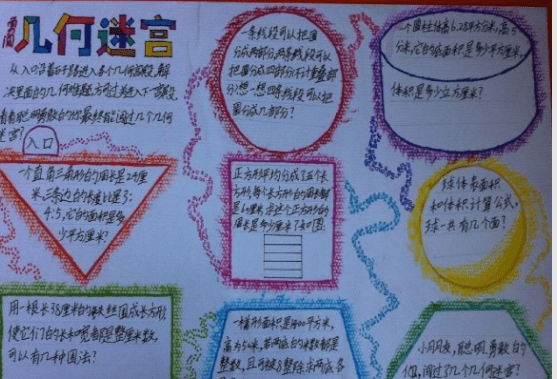 几何迷宫
从入口沿着石子路进入各个几何城段,解
决里面的几何难题方可进入下一城段,
看看聪明勇敢的你最终能闯过几个几何
迷宫?
入口
一条线段可以把圆
分成两部分,两条线段可以
把圆分成四部分(不计重叠部
分)想一想四条线段可以把
圆分成几部分?
个圆柱体高6.28平方米,高5
分米,它的底面积是多少平方米,
体积是多少立方米?
一个直角三角形的周长是24厘
米,三条边的长度比是3:
4:5,它的面积是多
少平方厘米?
正方形平均分成了五个长
方形,每个长方形的周长都
是厘米,求这个正方形的
周长是多少厘米?如图:
球体表面积
和体积计算公式.
球一共有几个面?
用一根长38厘米的铁丝围成长方形,
使它们的长和宽都是整厘米数,
可以有几种围法?
一梯形面积是1400平方米,
高为50米,若两底的米数都是
整数,且可被8整除求两底各
小朋友,聪明、勇敢的
你,闯过了几个几何迷宫?